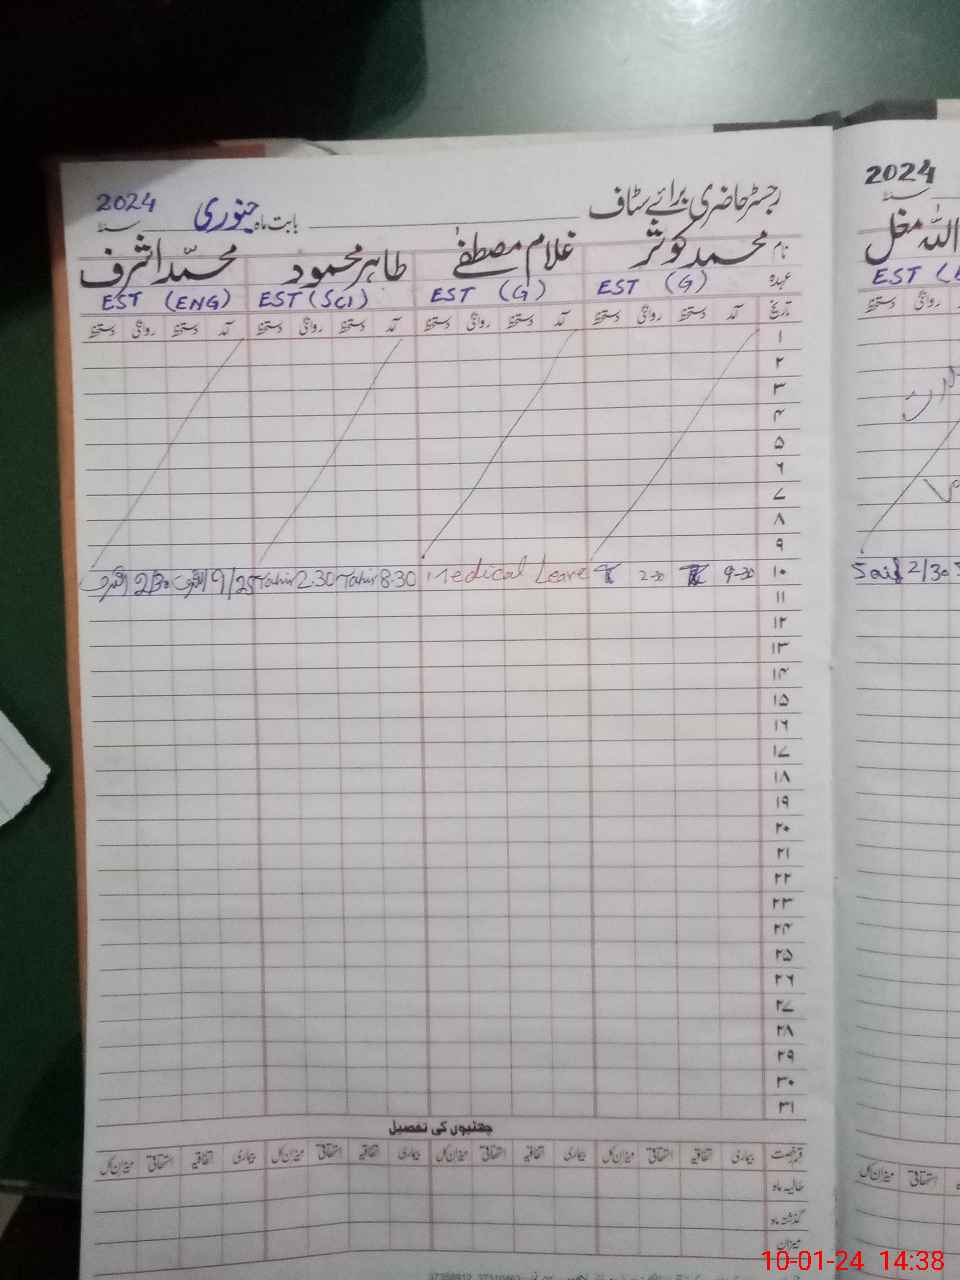 رجسٹر حاضری برائے سٹاف بابت ماہ جنوری 2024 سنہ
نام محمد کوثر غلام مصطفیٰ طاہر محمود محمد اشرف
عہدہ EST (G) EST (G) EST (SCI) EST (ENG)
تاریخ آمد دستخط روانگی دستخط آمد دستخط روانگی دستخط آمد دستخط روانگی دستخط آمد دستخط روانگی دستخط
۱
۲
۳
۴
۵
۶
۷
۸
۹
۱۰ 9-30 2-30 Medical Leave 8.30 Tahir 2.30 Tahir 9/25 اشرف 2/30 اشرف
۱۱
۱۲
۱۳
۱۴
۱۵
۱۶
۱۷
۱۸
۱۹
۲۰
۲۱
۲۲
۲۳
۲۴
۲۵
۲۶
۲۷
۲۸
۲۹
۳۰
۳۱
چھٹیوں کی تفصیل
قسم رخصت بیماری اتفاقیہ استحقاقی میزان کل بیماری اتفاقیہ استحقاقی میزان کل بیماری اتفاقیہ استحقاقی میزان کل بیماری اتفاقیہ استحقاقی میزان کل
حالیہ ماہ
گذشتہ ماہ
میزان
2024
سنہ
اللہ مغل
EST
دستخط روانگی
Said 2/30
میزان کل استحقاقی
10-01-24 14:38